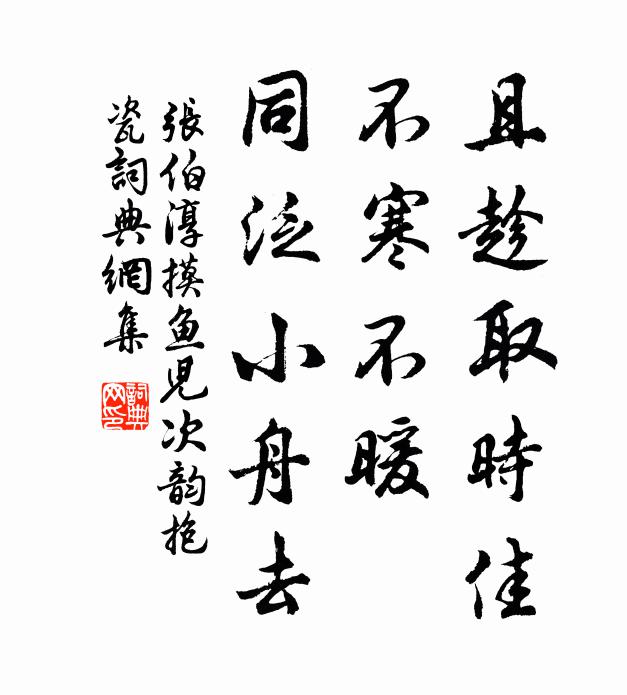 且趁取時佳
不寒不暖
同泛小舟去
張伯淳摸鱼児次韵抱
瓷詞典網集
詞典网印